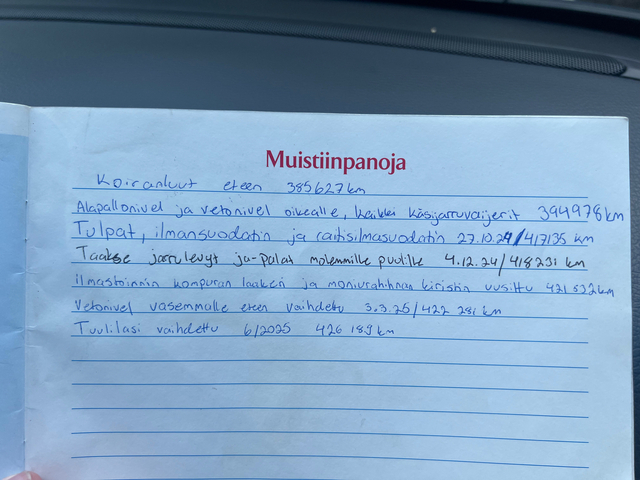 Muistiinpanoja
Koiranluut eteen 385627km
Alapallonivel ja vetonivel oikealle, kaikki käsijarruvaijerit 394978km
Tulpat, ilmansuodatin ja raitisilmasuodatin 27.10.24/417135 km
Taakse jarrulevyt ja-palat molemmille puolille 4.12.24/418231 km
ilmastoinnin kompuran laakeri ja moniurahihnan kiristin uusittu 421522km
Vetonivel vasemmalle eteen vaihdettu 3.3.25/422 281 km
Tuulilasi vaihdettu 6/2025 426 189 km